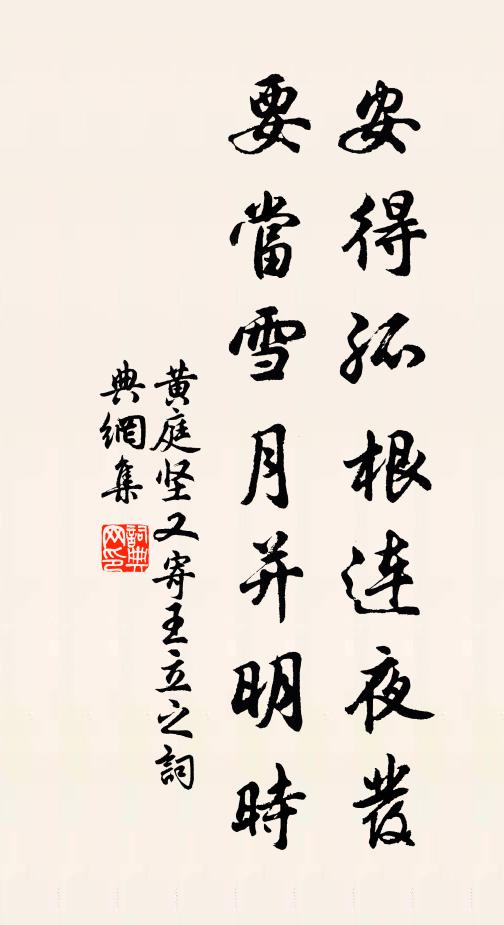 安得孤根連夜發
要當雪月并明時
黄庭坚又寄王立之詞
典網集
詞典網印